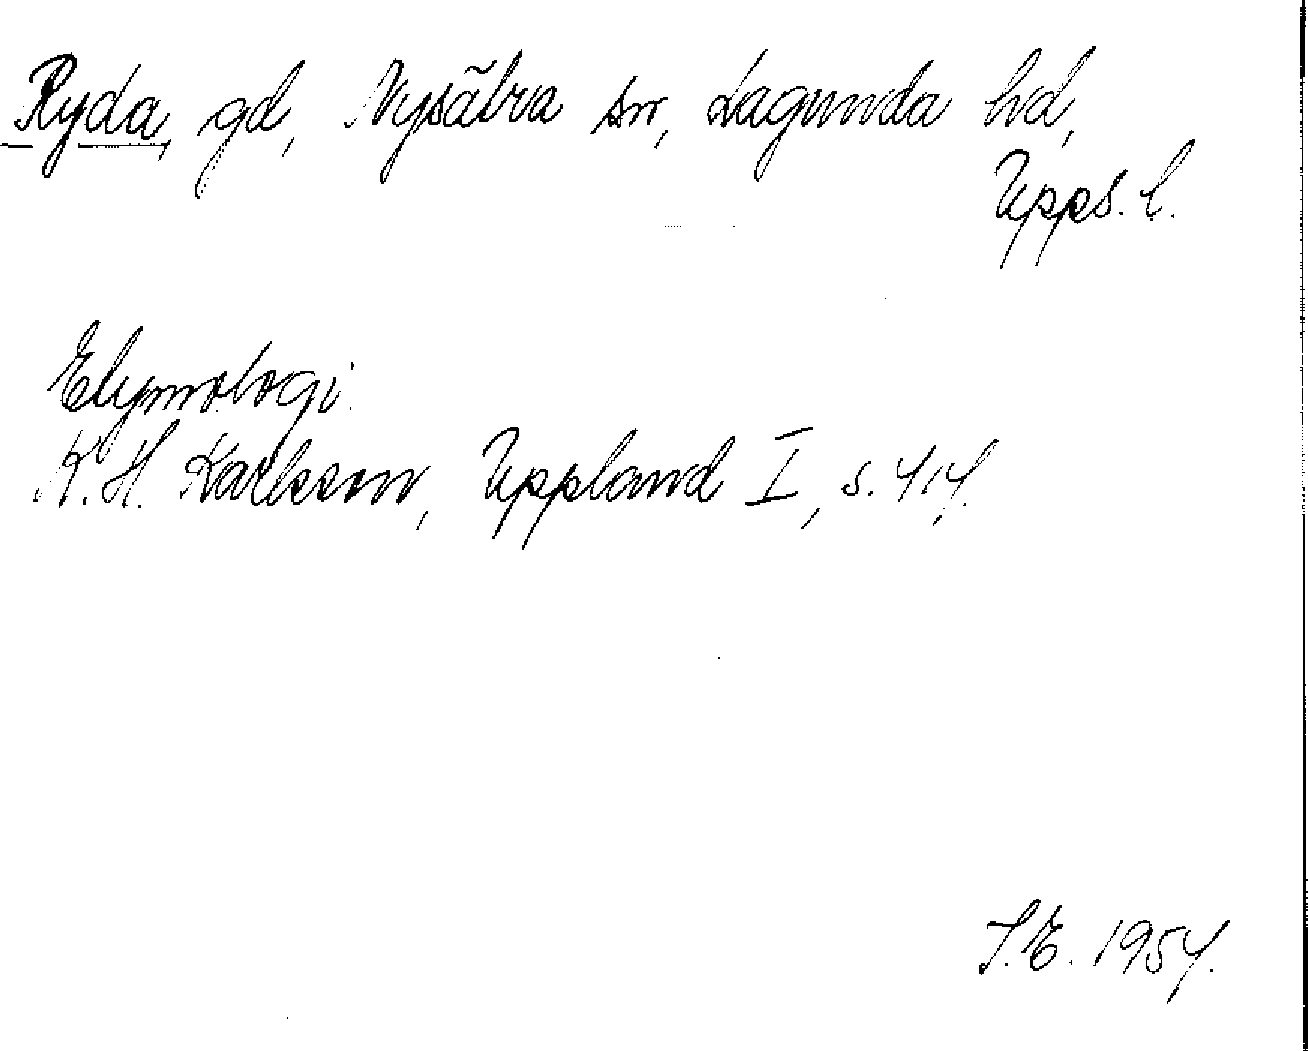 Ryda, gd, Nysätra sn, Lagunda hd,
Upps. l.
Etymologi.
K. H. Karlsson, Uppland I, s. 414.
S. E. 1954.